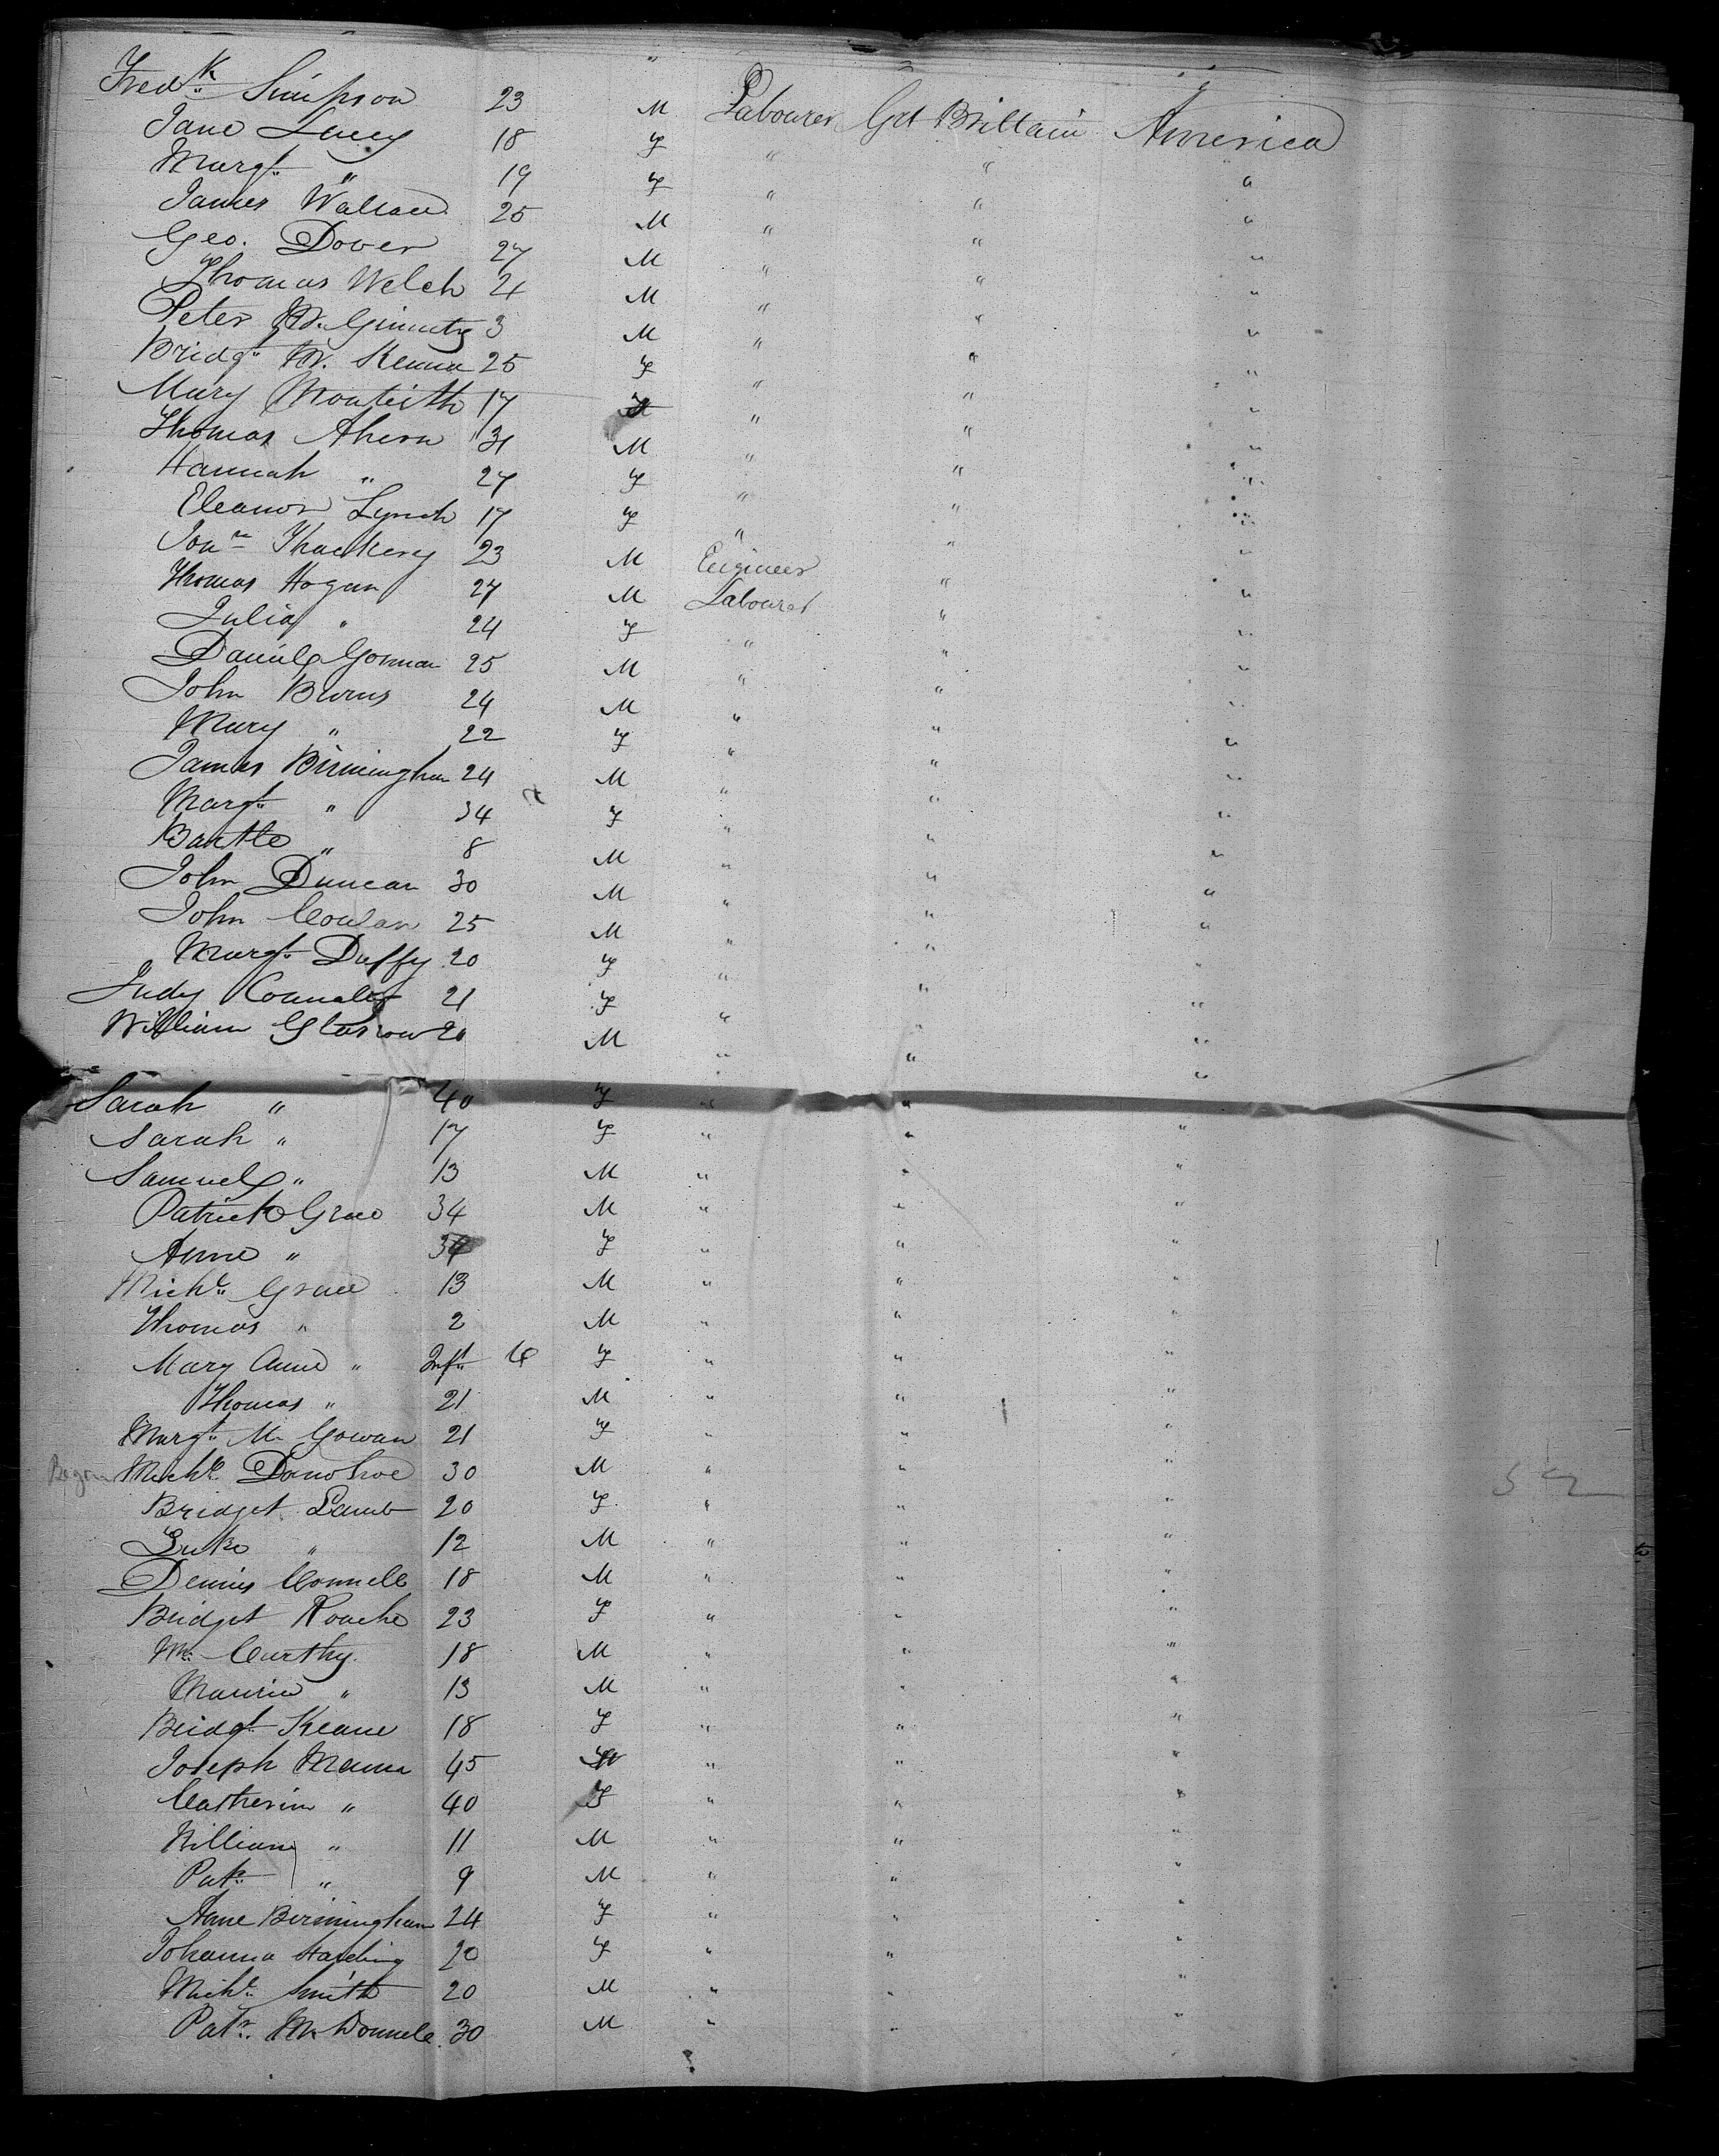 Fredk. Simpson 23 M Labourer Gd Brittain America
Jane Lacey 18 F " " "
Margt. " 19 F " " "
James Wallace 25 M " " "
Geo. Dover 27 M " " "
Thomas Welch 21 M " " "
Peter McGinnity 3 M " " "
Bridgt. McKenna 25 F " " "
Mary Monteith 17 F " " "
Thomas Ahern 31 M " " "
Hannah " 27 F " " "
Eleanor Lynch 17 F " " "
Jonn. Thackery 23 M Engineer " "
Thomas Hogan 27 M Labourer " "
Julia " 24 F " " "
Daniel Gorman 25 M " " "
John Burns 24 M " " "
Mary " 22 F " " "
James Birmingham 24 M " " "
Margt. " 34 F " " "
Bartle " 8 M " " "
John Duncan 30 M " " "
John 25 M " " "
Margt. Duffy 20 F " " "
Judy 21 F " " "
William Glasrow 20 M " " "
Sarah " 40 F " " "
Sarah " 17 F " " "
Samuel " 13 M " " "
Patrick Grace 34 M " " "
Anne " 34 F " " "
Michl. Grace 13 M " " "
Thomas " 2 M " " "
Mary Anne " Inft. F " " "
Thomas " 21 M " " "
Margt. Mc Gowan 21 F " " "
Michl. Donohoe 30 M " " "
Bridget Lamb 20 F " " "
Luke " 12 M " " "
Dennis Connell 18 M " " "
Bridget Roache 23 F " " "
Mc Carthy 18 M " " "
Maurice " 13 M " " "
Bridgt. Keane 18 F " " "
Joseph 45 M " " "
Catherine " 40 F " " "
William " 11 M " " "
Patk. " 9 M " " "
Anne Birmingham 24 F " " "
Johanna Harding 20 F " " "
Michl. Smith 20 M " " "
Patk. McDonnell 30 M " " "
52